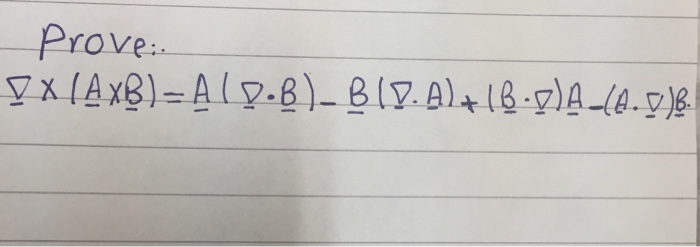 Prove:.
∇ × (A × B) = A (∇ · B) - B (∇ . A) + (B · ∇) A - (A . ∇) B.